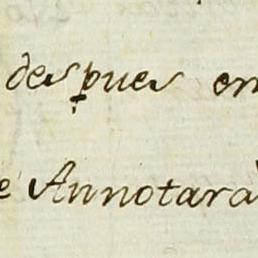 despues
Annotarà